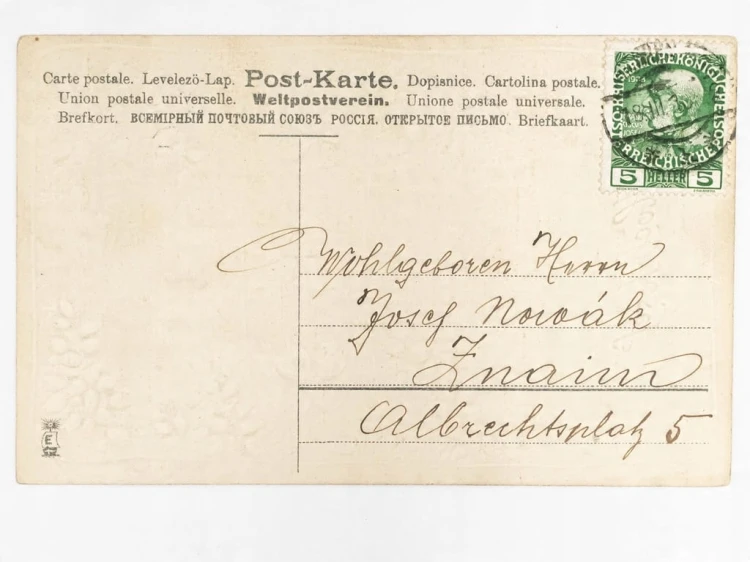 Carte postale. Levelezö-Lap. Post-Karte. Dopisnice. Cartolina postale.
Union postale universelle. Weltpostverein. Unione postale universale.
Brefkort. ВСЕМІРНЫЙ ПОЧТОВЫЙ СОЮЗЪ РОССІЯ. ОТКРЫТОЕ ПИСЬМО. Briefkaart.
5 HELLER 5
Wohlgeboren Herrn
Josef Nowák
Znaim
Albrechtsplatz 5
E